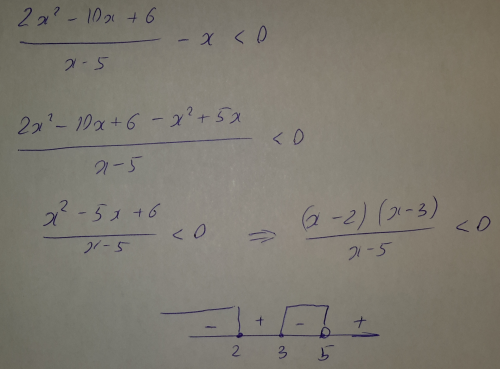 2x² - 10x + 6
x - 5
- x < 0
2x² - 10x + 6 - x² + 5x
x - 5
< 0
x² - 5x + 6
x - 5
< 0 ⇒
(x - 2) (x - 3)
x - 5
< 0
- + - +
2 3 5